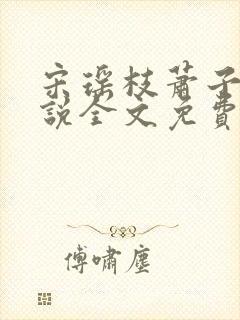 宋瑶枝蕭子
說全文免費
傅嘯塵